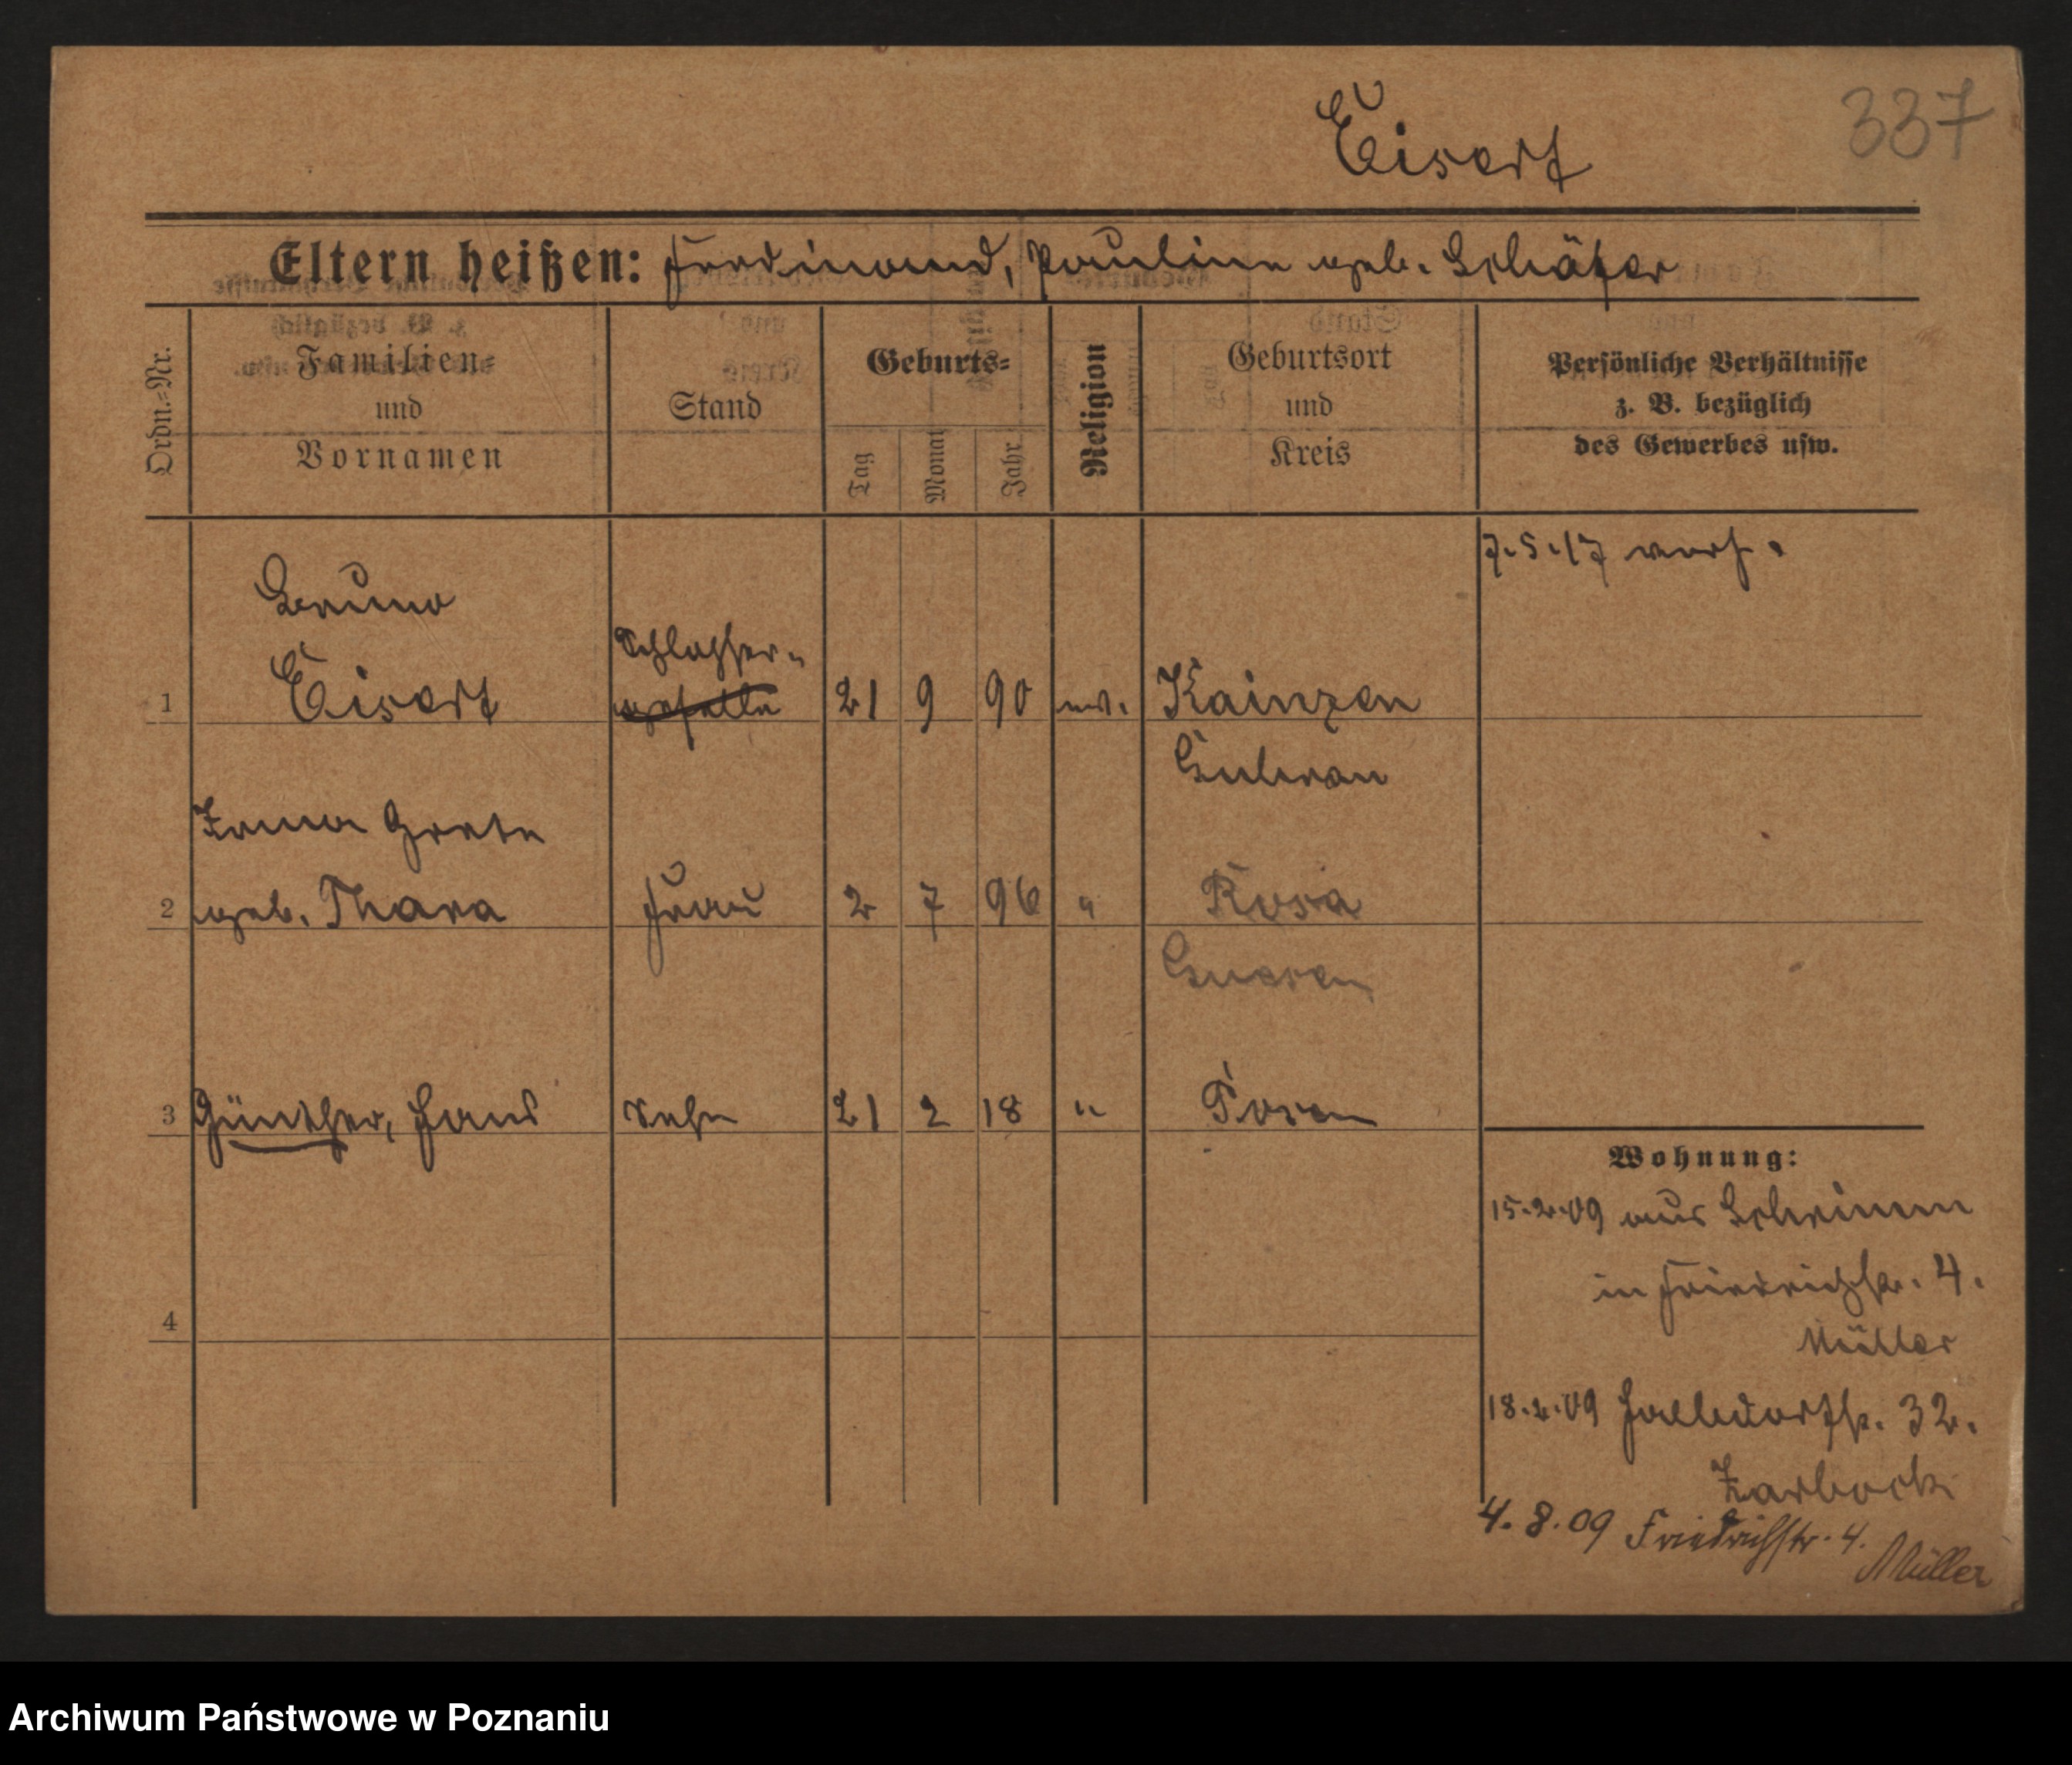 337
Eisert
Eltern heißen: Ferdinand, Pauline geb. Schäfer
Ordn.-Nr.
Familien-
und
Vornamen
Stand
Geburts-
Tag
Monat
Jahr
Religion
Geburtsort
und
Kreis
Persönliche Verhältnisse
z. B. bezüglich
des Gewerbes usw.
7.5.17 verh.
Bruno
Schlosser-
1 Eisert geselle 21 9 90 ev. Kainzen
Guhrau
Grete
2 geb. Frau 2 7 96 "
3 Günther, Hans Sohn 21 2 18 " Posen
Wohnung:
15.2.09 aus
in Friedrichstr. 4.
Müller
4
18.2.09 32.
Zarbock
4.8.09 Friedrichstr. 4.
Müller
Archiwum Państwowe w Poznaniu